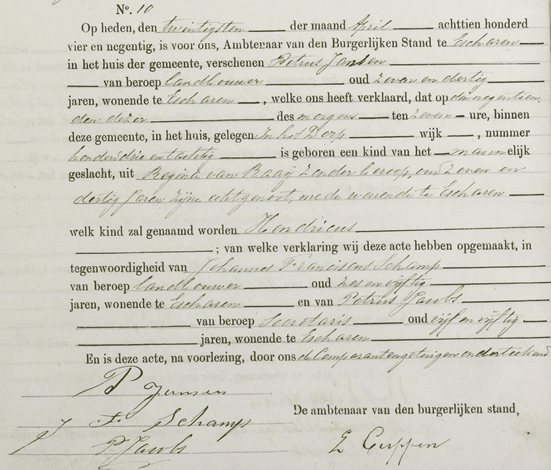 No. 10
Op heden, den twintigsten der maand April achttien honderd
vier en negentig, is voor ons, Ambtenaar van den Burgerlijken Stand te Escharen
in het huis der gemeente, verschenen Petrus Jansen
van beroep landbouwer oud zeven en dertig
jaren, wonende te Escharen, welke ons heeft verklaard, dat op den negentien
den dezer des morgens ten zeven ure, binnen
deze gemeente, in het huis, gelegen In het Dorp wijk, nummer
honderd drie en tachtig is geboren een kind van het mannelijk
geslacht, uit Regina van Raaij zonder beroep, oud zeven en
dertig jaren zijne echtgenoot, mede wonende te Escharen
welk kind zal genaamd worden Hendricus
; van welke verklaring wij deze acte hebben opgemaakt, in
tegenwoordigheid van Johannes Franciscus Schamp
van beroep landbouwer oud zes en vijftig
jaren, wonende te Escharen en van Petrus Jacobs
van beroep Secretaris oud vijf en vijftig
jaren, wonende te Escharen
En is deze acte, na voorlezing, door ons de Comparant en getuigen onderteekend
P Jansen
De ambtenaar van den burgerlijken stand,
J F Schamp
P Jacobs